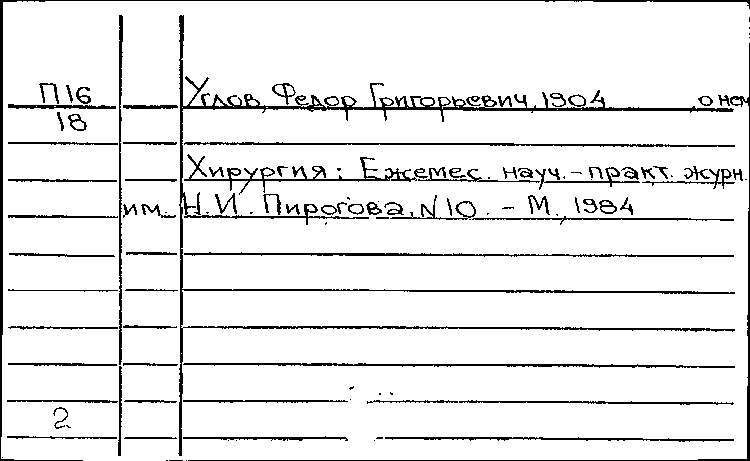 П16 Углов, Федор Григорьевич, 1904 , о нем
18
Хирургия: Ежемес. науч.-практ. журн.
им. Н.И. Пирогова. N10. - М., 1984
2